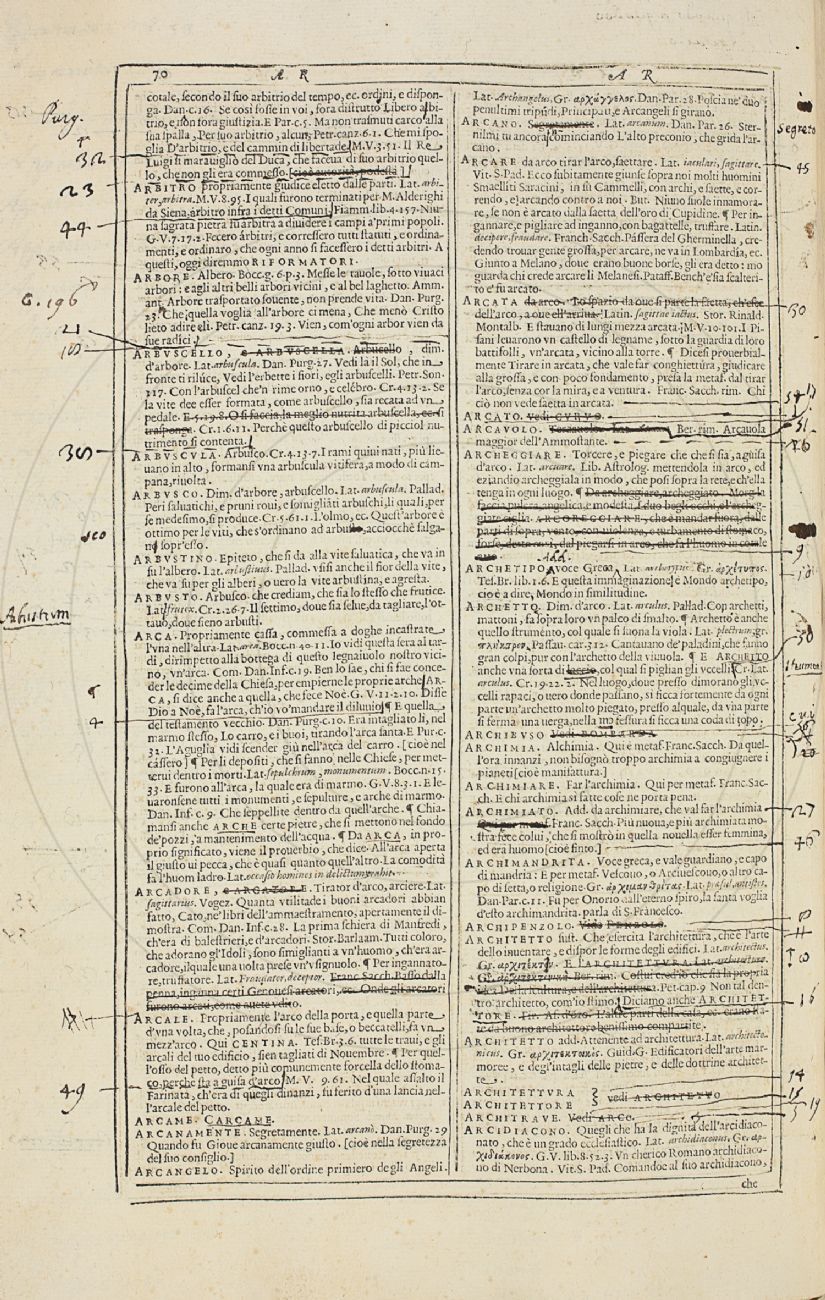 70 A R
A R
cotale, secondo il suo arbitrio del tempo, ec. ordini, e dispon-
ga. Dan. c. 16. Se così fosse in voi, fora distrutto Libero albi-
trio, e non fora giustizia. E Par. c. 5. Ma non trasmuti carco alla
sua spalla, Per suo arbitrio, alcun. Petr. canz. 6. 1. Che mi spo-
glia D'arbitrio, e del cammin di libertade. M. V. 3. 51. Il Re
Luigi si maravigliò del Duca, che faceua di suo arbitrio quel-
lo, che non gli era commesso. [cioè autorità, podestà]
ARBITRO propriamente giudice eletto dalle parti. Lat. arbi-
ter, arbitra. M. V. 8. 95. I quali furono terminati per M. Alderighi
da Siena arbitro infra i detti Comuni. Fiamm. lib. 4. 157. Niu-
na sagrata pietra fu arbitra a diuidere i campi a' primi popoli.
G. V. 7. 17. 2. Fecero àrbitri, e corressero tutti statuti, e ordina-
menti, e ordinaro, che ogni anno si facessero i detti arbitri. A
questi, oggi diremmo RIFORMATORI.
ARBORE. Albero. Bocc. g. 6. p. 3. Messe le tauole, sotto viuaci
arbori: e agli altri belli arbori vicini, e al bel laghetto. Amm.
ant. Arbore trasportato souente, non prende vita. Dan. Purg.
23. Che quella voglia all'arbore ci mena, Che menò Cristo
lieto a dire eli. Petr. canz. 19. 3. Vien, com'ogni arbor vien da
sue radici.
ARBVSCELLO, e ARBVSCELLA. Arbucello, dim.
d'arbore. Lat. arbuscula. Dan. Purg. 27. Vedi là il Sol, che in
fronte ti riluce, Vedi l'erbette i fiori, egli arbuscelli. Petr. Son.
227. Con l'arbuscel che'n rime orno, e celèbro. Cr. 4. 13. 2. Se
la vite dee esser formata, come arbuscello, sia recata ad vn
pedale. E 5. 19. 8. O si faccia la meglio nutrita arbuscella, ec. si
trasponga. Cr. 1. 6. 11. Perchè questo arbuscello di picciol nu-
trimento si contenta.
ARBVSCVLA. Arbusco. Cr. 4. 13. 7. I rami quiui nati, più lie-
uano in alto, formansi vna arbuscula vitifera, a modo di cam-
pana, riuolta.
ARBVSCO. Dim. d'arbore, arbuscello. Lat. arbuscula. Pallad.
Peri saluatichi, e pruni roui, e somiglianti arbuschi, li quali, per
se medesimo, si produce. Cr. 5. 61. 1. l'olmo, ec. Quest'arbore è
ottimo per le viti, che s'ordinano ad arbusto, acciocchè salga-
no sopr'esso.
ARBVSTINO. Epiteto, che si da alla vite saluatica, che va in
su l'albero. Lat. arbustiuus. Pallad. vi si anche il fior della vite,
che va su per gli alberi, o uero la vite arbustina, e agresta.
ARBVSTO. Arbusco. che crediam, che sia lo stesso che frutice.
Lat. frutex. Cr. 2. 26. 7. Il settimo, doue sia selue, da tagliare, l'ot-
tauo, doue sieno arbusti.
ARCA. Propriamente cassa, commessa a doghe incastrate
l'vna nell'altra. Lat. arca. Bocc. n. 40. 11. Io vidi questa sera al tar-
di, dirimpetto alla bottega di questo legnaiuolo nostro vici-
no, vn'arca. Com. Dan. Inf. c. 19. Ben lo sae, chi si fae conce-
der le decime della Chiesa, per empierne le proprie arche. AR-
CA, si dice anche a quella, che fece Noè. G. V. 11. 2. 10. Disse
Dio a Noè, fa l'arca, ch'io vo' mandare il diluuio. ¶ E quella
del testamento vecchio. Dan. Purg. c. 10. Era intagliato lì, nel
marmo stesso, Lo carro, e i buoi, tirando l'arca santa. E Pur. c.
32. L'Aguglia vidi scender giù nell'arca del carro. [cioè nel
cassero] ¶ Per li depositi, che si fanno nelle Chiese, per met-
terui dentro i morti. Lat. sepulchrum, monumentum. Bocc. n. 15.
33. E furono all'arca, la quale era di marmo. G. V. 8. 3. 1. E le-
uaronsene tutti i monumenti, e sepulture, e arche di marmo.
Dan. Inf. c. 9. Che seppellite dentro da quell'arche. ¶ Chia-
mansi anche ARCHE certe pietre, che si mettono nel fondo
de' pozzi, a mantenimento dell'acqua. ¶ Da ARCA, in pro-
prio significato, viene il prouerbio, che dice. All'arca aperta
il giusto ui pecca, che è quasi quanto quell'altro. La comodità
fa l'huom ladro. Lat. occasio homines in delictum trahit.
ARCADORE, e ARCATORE. Tirator d'arco, arciere. Lat.
sagittarius. Vegez. Quanta vtilitade i buoni arcadori abbian
fatto, Cato, ne' libri dell'ammaestramento, apertamente il di-
mostra. Com. Dan. Inf. c. 28. La prima schiera di Manfredi,
ch'era di balestrieri, e d'arcadori. Stor. Barlaam. Tutti coloro,
che adorano gl'Idoli, sono simiglianti a vn'huomo, ch'era ar-
cadore, il quale una uolta prese vn'vsignuolo. ¶ Per ingannato-
re, truffatore. Lat. Fraudator, deceptor. Franc. Sacch. Passo dalla
penna, inganna certi Genouesi arcatori, ec. Onde gli arcatori
furono arcati, come auete vdito.
ARCALE. Propriamente l'arco della porta, e quella parte
d'vna volta, che, posandosi su le sue base, o beccatelli, fa vn
mezz'arco. Qui CENTINA. Tes. Br. 3. 6. tutte le traui, e gli
arcali del tuo edificio, sien tagliati di Nouembre. ¶ Per quel-
l'osso del petto, detto più comunemente forcella dello stoma-
co, perche sta a guisa d'arco. M. V. 9. 61. Nel quale assalto il
Farinata, ch'era di quegli dinanzi, fu ferito d'una lancia nel-
l'arcale del petto.
ARCAME. CARCAME.
ARCANAMENTE. Segretamente. Lat. arcanò. Dan. Purg. 29
Quando fu Gioue arcanamente giusto. [cioè nella segretezza
del suo consiglio.]
ARCANGELO. Spirito dell'ordine primiero degli Angeli.
Lat. Archangelus, Gr. αρχάγγελος. Dan. Par. 28. Poscia ne' duo
penultimi tripudi, Principati, e Arcangeli si girano.
ARCANO. Segretamente. Lat. arcanum. Dan. Par. 26. Ster-
nilmi tu ancora, cominciando L'alto preconio, che grida l'ar-
cano.
ARCARE da arco tirar l'arco, saettare. Lat. iaculari, sagittare.
Vit. S. Pad. Ecco subitamente giunse sopra noi molti huomini
Smaelliti Saracini, in su Cammelli, con archi, e saette, e cor-
rendo, e arcando contro a noi. But. Niuno suole innamora-
re, se non è arcato dalla saetta dell'oro di Cupidine. ¶ Per in-
gannare, e pigliare ad inganno, con bagattelle, truffare. Latin.
decipere, fraudare. Franch. Sacch. Passera del Gherminella, cre-
dendo trouar gente grossa, per arcare, ne va in Lombardia, ec.
Giunto a Melano, doue erano buone borse, gli era detto: mo
guarda chi crede arcare li Melanesi. Pataff. Bench'e' sia scalteri-
to e' fu arcato.
ARCATA da arco. Lo spazio da oue si parte la saetta, ch'esce
dell'arco, a oue ell'arriua. Latin. sagittae iactus. Stor. Rinald.
Montalb. E stauano di lungi mezza arcata. M. V. 10. 101. I Pi-
sani leuarono vn castello di legname, sotto la guardia di loro
battifolli, vn'arcata, vicino alla torre. ¶ Dicesi prouerbial-
mente Tirare in arcata, che vale far conghiettura, giudicare
alla grossa, e con poco fondamento, presa la metaf. dal tirar
l'arco, senza cor la mira, e a ventura. Franc. Sacch. rim. Chi
ciò non vede saetta in arcata.
ARCATO. Vedi CVRVO.
ARCAVOLO. Ber. rim. Arcauola
maggior dell'Ammostante.
ARCHEGGIARE. Torcere, e piegare che che si sia, a guisa
d'arco. Lat. arcuare. Lib. Astrolog. mettendola in arco, ed
eziandio archeggiala in modo, che posi sopra la rete, e ch'ella
tenga in ogni luogo. ¶ Da archeggiare, archeggiato. Morg. la
faccia pulcra, angelica, e modesta, E duo begli occhi, e l'archeg-
giate ciglia. ARCOREGGIARE, che è mandar fuora, dalle
parti di sopra, vento, con violenza, e turbamento di stomaco,
forse, detto così, dal piegarsi in arco, che fa l'huomo in cotale
atto.
ARCHETIPO, voce Greca. Lat. archetypus. Gr. ἀρχέτυπος.
Tes. Br. lib. 1. 6. E questa immaginazione è Mondo archetipo,
cioè a dire, Mondo in similitudine.
ARCHETTO. Dim. d'arco. Lat. arculus. Pallad. Cop archetti,
mattoni, fa sopra loro vn palco di smalto. ¶ Archetto è anche
quello strumento, col quale si suona la viola. Lat. plectrum, gr.
πλῆκτρον. Passau. car. 312. Cantauano de' paladini, che fanno
gran colpi, pur con l'archetto della viuuola. ¶ E ARCHETTO
anche vna sorta di laccio, col qual si piglian gli vccelli. Cr. Lat.
arculus. Cr. 19. 22. 2. Nel luogo, doue presso dimorano gli vc-
celli rapaci, o uero donde passano, si ficca fortemente da ogni
parte un'archetto molto piegato, presso al quale, da vna parte
si ferma una uerga, nella cui fessura si ficca una coda di topo.
ARCHIBVSO Vedi BOMBARDA.
ARCHIMIA. Alchimia. Qui è metaf. Franc. Sacch. Da quel-
l'ora innanzi, non bisognò troppo archimia a congiugnere i
pianeti [cioè manifattura.]
ARCHIMIARE. Far l'archimia. Qui per metaf. Franc. Sac-
ch. E chi archimia si fatte cose ne porta pena.
ARCHIMIATO. Add. da archimiare, che val far l'archimia
Qui per metaf. Franc. Sacch. Più nuoua, e più archimiata mo-
stra fece colui, che si mostrò in quella nouella esser femmina,
ed era huomo [cioè finto.]
ARCHIMANDRITA. Voce greca, e vale guardiano, e capo
di mandria: E per metaf. Vescouo, o Arciuescouo, o altro ca-
po di setta, o religione. Gr. αρχιμανδρίτας. Lat. praesul, antistes.
Dan. Par. c. 11. Fu per Onorio dall'eterno spiro, la santa voglia
d'esto archimandrita. parla di S. Francesco.
ARCHIPENZOLO. Vedi PENZOLO.
ARCHITETTO sust. Che esercita l'architettura, che è l'arte
dello inuentare, e dispor le forme degli edifici. Lat. architectus.
Gr. αρχιτέκτων. E l'ARCHITETTVRA. Lat. architectura.
Gr. αρχιτεκτονική. Ber. rim. Costui credo che sia la propria
idea Della scultura, e dell'architettura. Pet. cap. 9 Non tal den-
tro architetto, com'io stimo. Diciamo anche ARCHITET-
TORE. Fir. As. d'oro. L'altre parti della casa, ec. erano sta-
te da buono architettore benissimo compartite.
ARCHITETTO add. Attenente ad architettura. Lat. architecto-
nicus. Gr. αρχιτεκτονικός. Guid. G. Edificatori dell'arte mar-
moree, e degl'intagli delle pietre, e delle dottrine architet-
te.
ARCHITETTVRA
ARCHITETTORE
vedi ARCHITETTO
ARCHITRAVE. Vedi ARCO.
ARCIDIACONO. Quegli che ha la dignità dell'arcidiaco-
nato, che è un grado ecclesiastico. Lat. archidiaconus. Gr. αρ-
χιδιάκονος. G. V. lib. 8. 52. 3. Vn cherico Romano archidiaco-
uo di Nerbona. Vit. S. Pad. Comandoe al suo archidiacono,
che
Purg.
32
23
44
G. 196
21
18
38
sco
Arbustum
¶
4
49
segreto
45
30
9
50
27
46
14